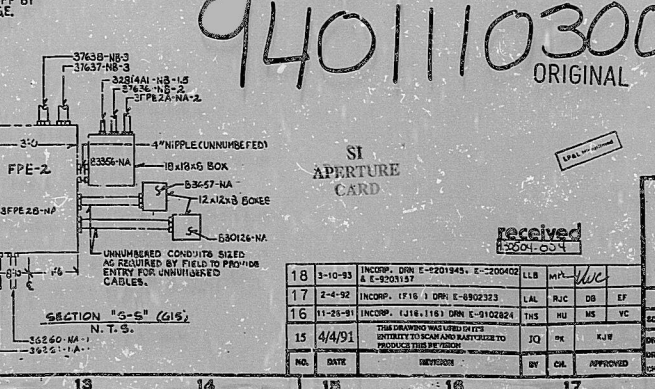 GE.
9401110300
ORIGINAL
37638-NB-3
37637-NB-3
37636-NB-2
3FPE2A-NA-2
4" NIPPLE (UNNUMBERED)
83356-NA
18x18x6 BOX
FPE-2
12x12x8 BOXES
830126-NA
UNNUMBERED CONDUITS SIZED
AS REQUIRED BY FIELD TO PROVIDE
ENTRY FOR UNNUMBERED
CABLES.
SECTION "S-S" (G15)
N.T.S.
SI
APERTURE
CARD
received
18 3-10-93 INCORP. DRN E-9201945, E-9200402 LLB
& E-9203157
17 2-4-92 INCORP. (F16) DRN E-8902323 LAL RJC DB EF
16 11-25-91 INCORP. (J16,I16) DRN E-9102824 THS HU MS VC
15 4/4/91 THIS DRAWING WAS USED IN IT'S
ENTIRITY TO SCAN AND RASTERIZE TO
PRODUCE THIS REVISION JQ KJW
NO. DATE REVISION BY CH. APPROVED
13 14 15 16 17